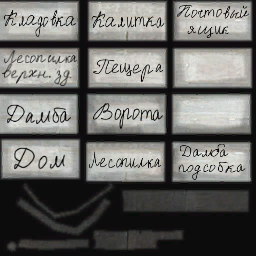 Кладовка
Калитка
Почтовый
ящик
Лесопилка
верхн. зд.
Пещера
Дамба
Ворота
Дом
Лесопилка
Дамба
подсобка